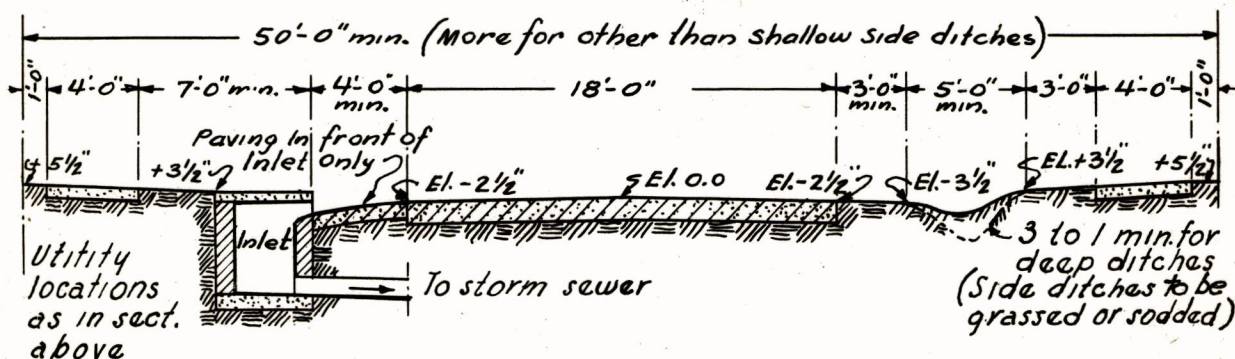 50'-0" min. (More for other than shallow side ditches)
1'-0" 4'-0" 7'-0" min. 4'-0" min. 18'-0" 3'-0" min. 5'-0" min. 3'-0" 4'-0" 1'-0"
Paving In front of
Inlet only
+ 5½" +3½" El. -2½" El. 0.0 El. -2½" El. -3½" EL. +3½" +5½"
Inlet
Utitity
locations
as in sect.
above
To storm sewer
3 to 1 min. for
deep ditches
(Side ditches to be
grassed or sodded)